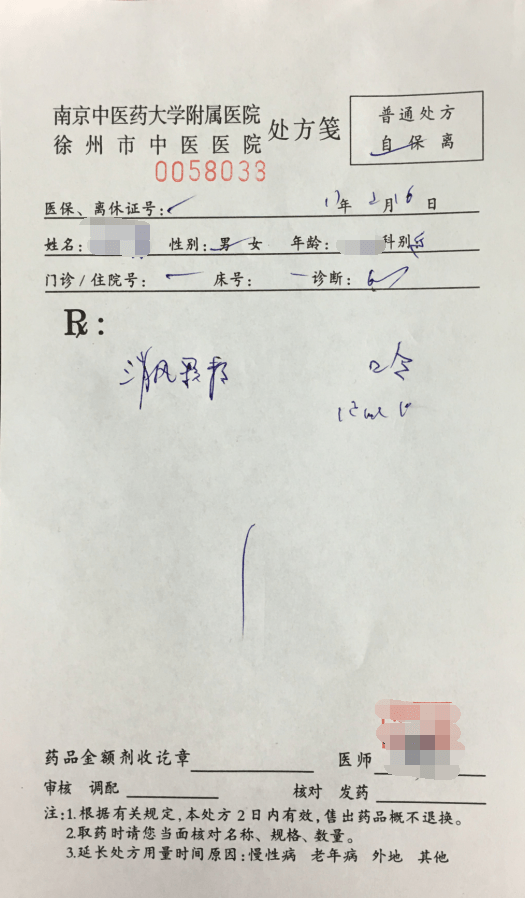 南京中医药大学附属医院
徐州市中医医院 处方笺
普通处方
自 保 离
0058033
医保、离休证号: 17年2月16日
姓名: 性别: 男 女 年龄: 科别
门诊/住院号: 床号: 诊断:
R:
消风
药品金额剂收讫章 医师
审核 调配 核对 发药
注:1.根据有关规定,本处方2日内有效,售出药品概不退换。
2.取药时请您当面核对名称、规格、数量。
3.延长处方用量时间原因:慢性病 老年病 外地 其他